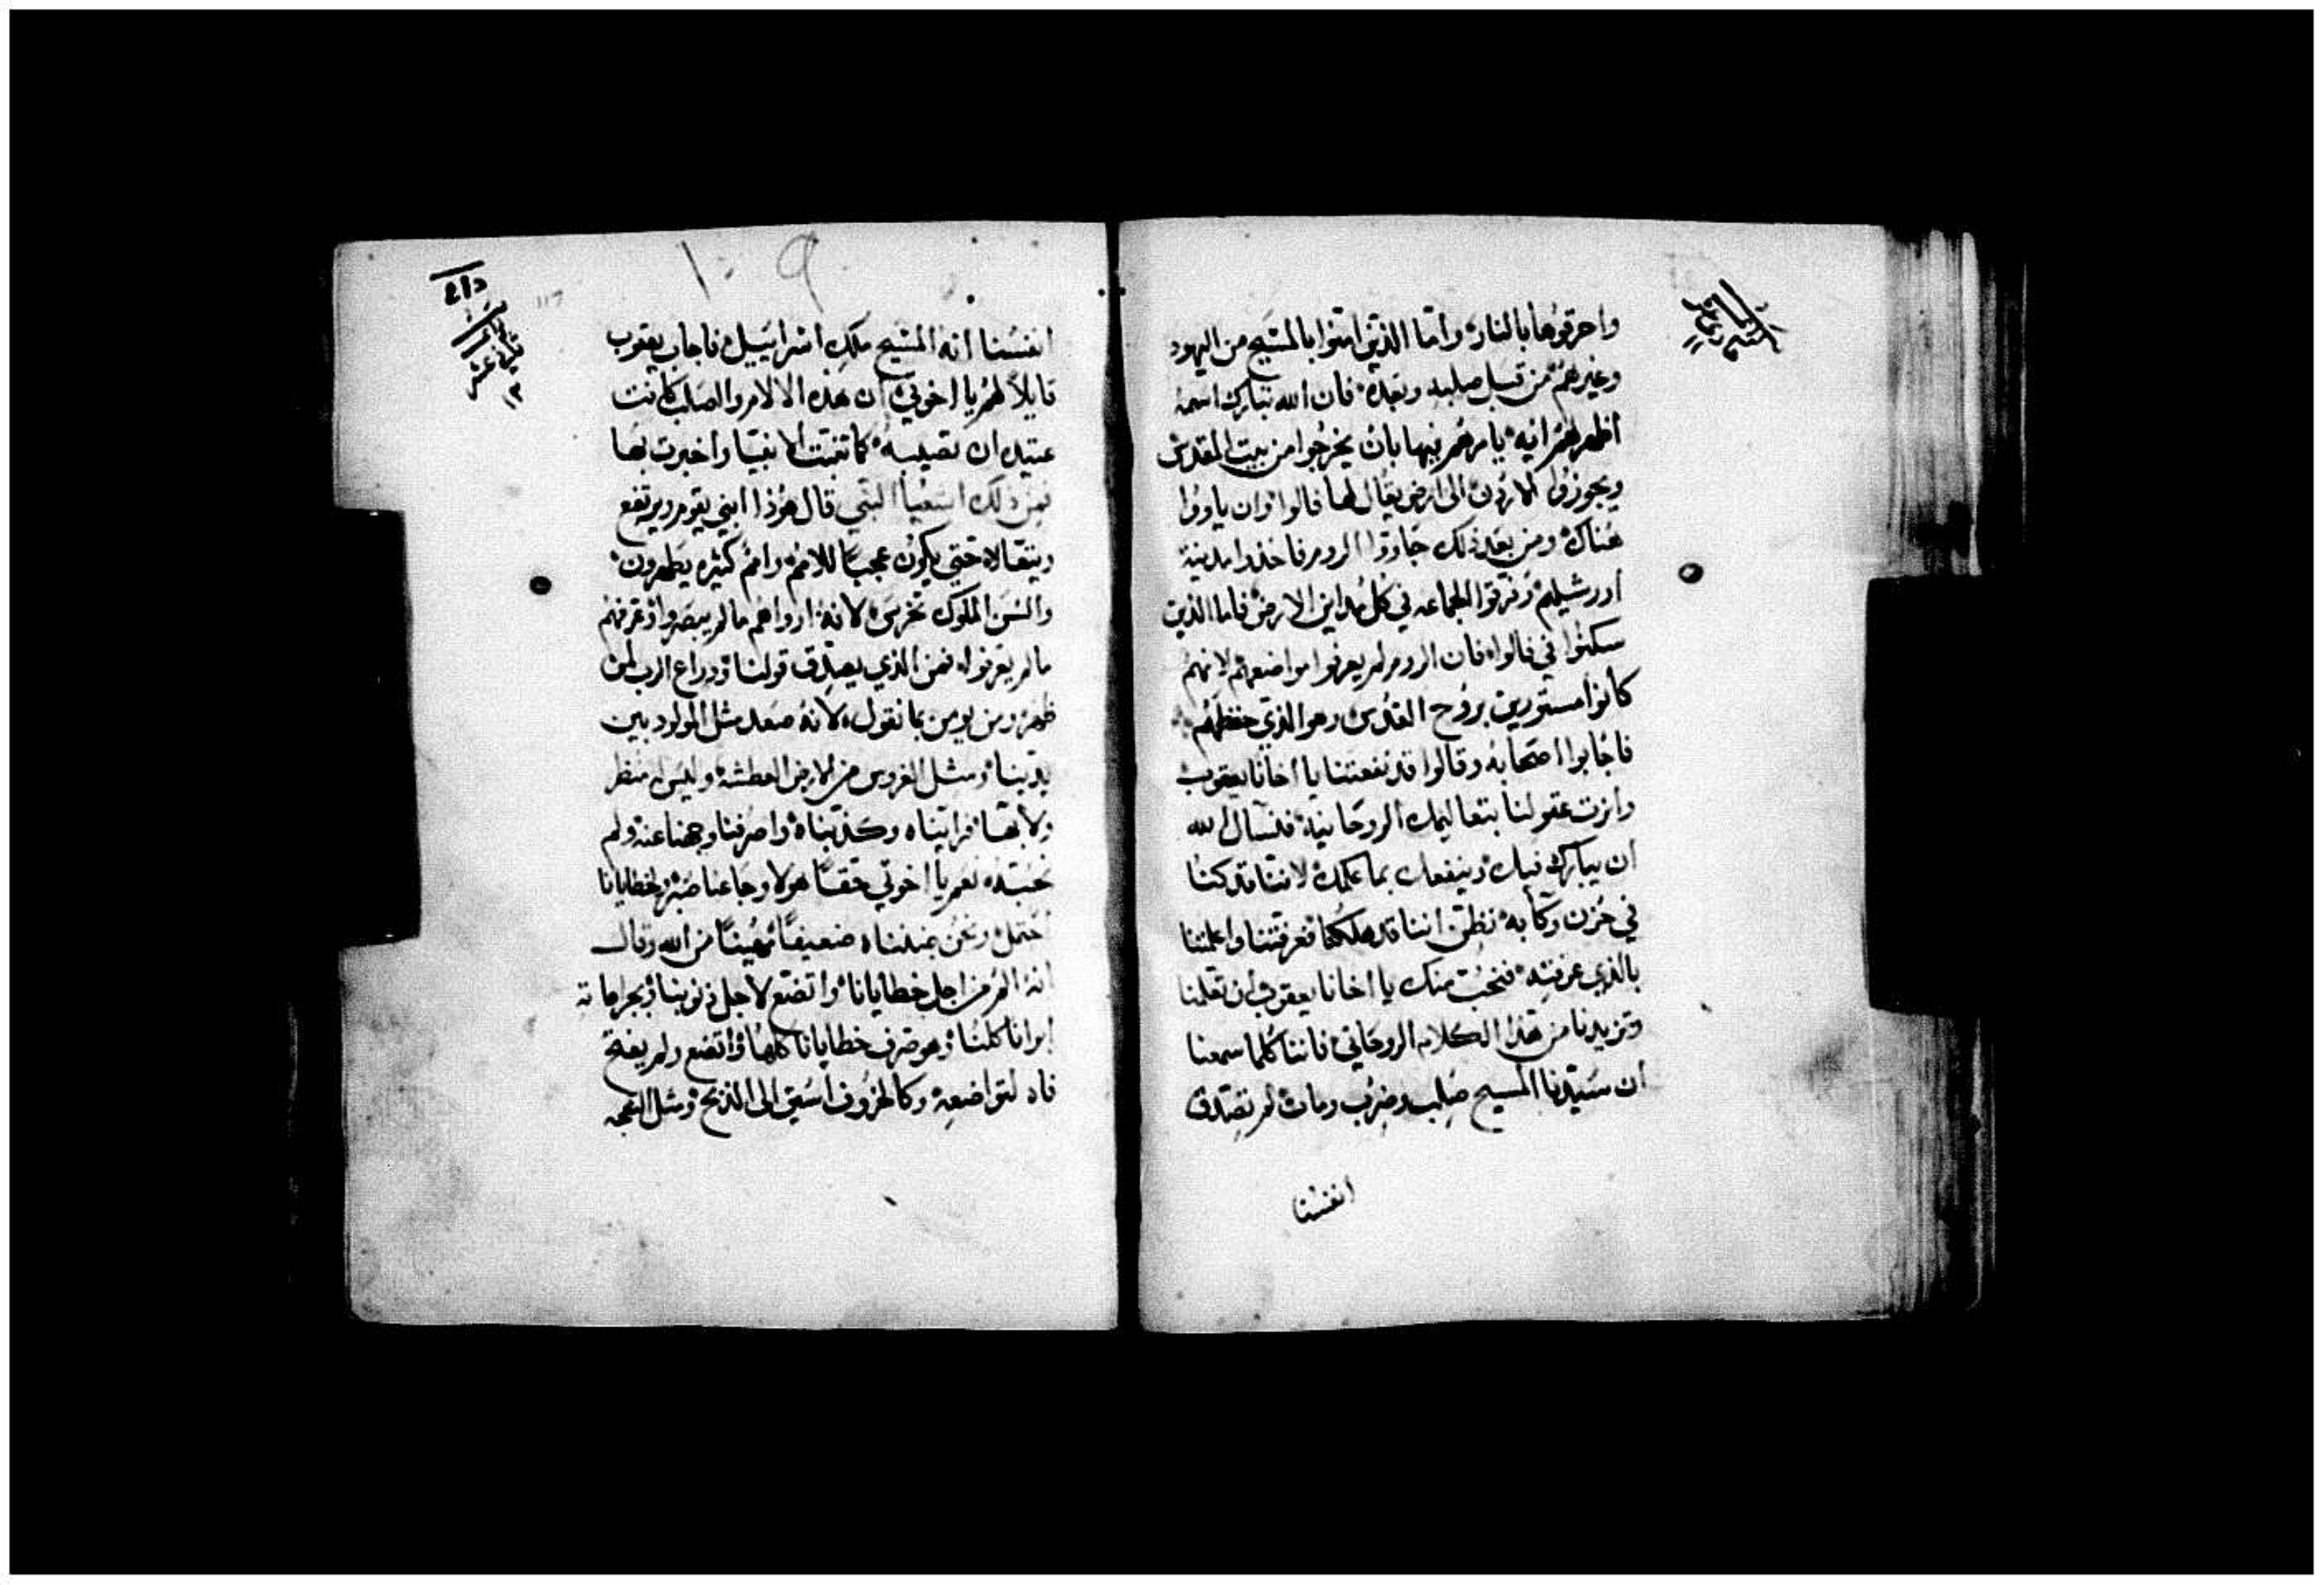 واحرقوها بالنار واما الذين امنوا بالمسيح من اليهود
وغيرهم من قبل صلبه وبعده فان الله تبارك اسمه
اظهر لهم ايه يامرهم فيها بان يخرجوا من بيت المقدس
ويجوزوا الاردن الى ارض يقال لها فالوا وان ياووا
هناك ومن بعد ذلك جاووا الروم فاخذوا مدينة
اورشليم وفرقوا الجماعه في كل مداين الارض فاما الذين
سكنوا في فالوا فان الروم لم يعرفوا مواضعهم لانهم
كانوا مستورين بروح القدس وهو الذي حفظهم
فاجابوا اصحابه وقالوا قد نفعتنا يا اخانا يعقوب
وانرت عقولنا بتعاليمك الروحانية فنسال الله
ان يبارك فيك وينفعك بما علمك لاننا قد كنا
في حزن وكآبه نظن اننا قد هلكنا فعرفتنا واعلمتنا
بالذي عرفته فنحب منك يا اخانا يعقوب ان تعلمنا
وتزيدنا من هذا الكلام الروحاني فاننا كلما سمعنا
ان سيدنا المسيح صلب وضرب ومات لم نصدق
انفسنا
انفسنا انه المسيح ملك اسراييل فاجاب يعقوب
قايلاً لهم يا اخوتي ان هذه الالام والصلب كانت
عتيده ان تصيبه كما تنبت الانبيا واخبرت بها
فمن ذلك اشعيا النبي قال هوذا ابني يقوم ويرتفع
ويتعالا حتي يكون عجبا للامم وامم كثيره يطهرون
والسن الملوك تخرس لانه ارواهم ما لم يبصروا وعرفهم
ما لم يعرفوا فمن الذي يصدق قولنا ودراع الرب لمن
ظهر ومن يومن بما نقول لانه صعد مثل المولود بين
يدينا ومثل الغروس من الارض العطشه وليس له منظر
ولا بها فرايناه وكذبناه واصرفنا وجهنا عنه ولم
نحتده نعم يا اخوتي حقا هولا وجاعنا صبر لخطايانا
احتمل ونحن ضنناه ضعيفا مهينا من الله وقال
انه الم من اجل خطايانا واتضع لاجل ذنوبنا وبجراحاته
ابرانا كلنا وهو صرف خطايانا كلها واتضع ولم يفتح
فاه لتواضعه وكالخروف اسيق الى الذبح ومثل النعجه
١٠٩